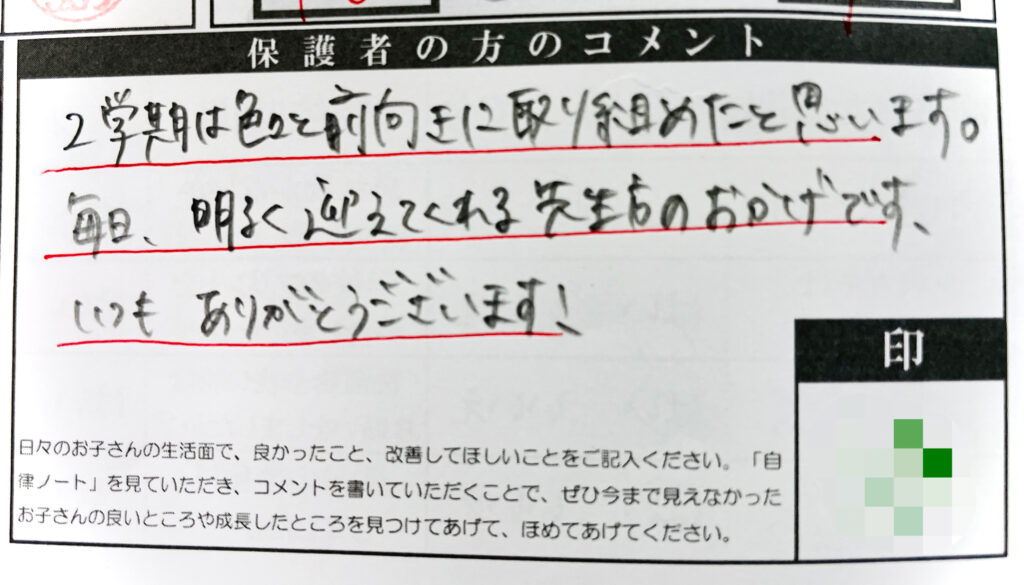 保護者の方のコメント
2学期は色々と前向きに取り組めたと思います。
毎日、明るく迎えてくれる先生方のおかげです、
いつも ありがとうございます!
印
日々のお子さんの生活面で、良かったこと、改善してほしいことをご記入ください。「自
律ノート」を見ていただき、コメントを書いていただくことで、ぜひ今まで見えなかった
お子さんの良いところや成長したところを見つけてあげて、ほめてあげてください。